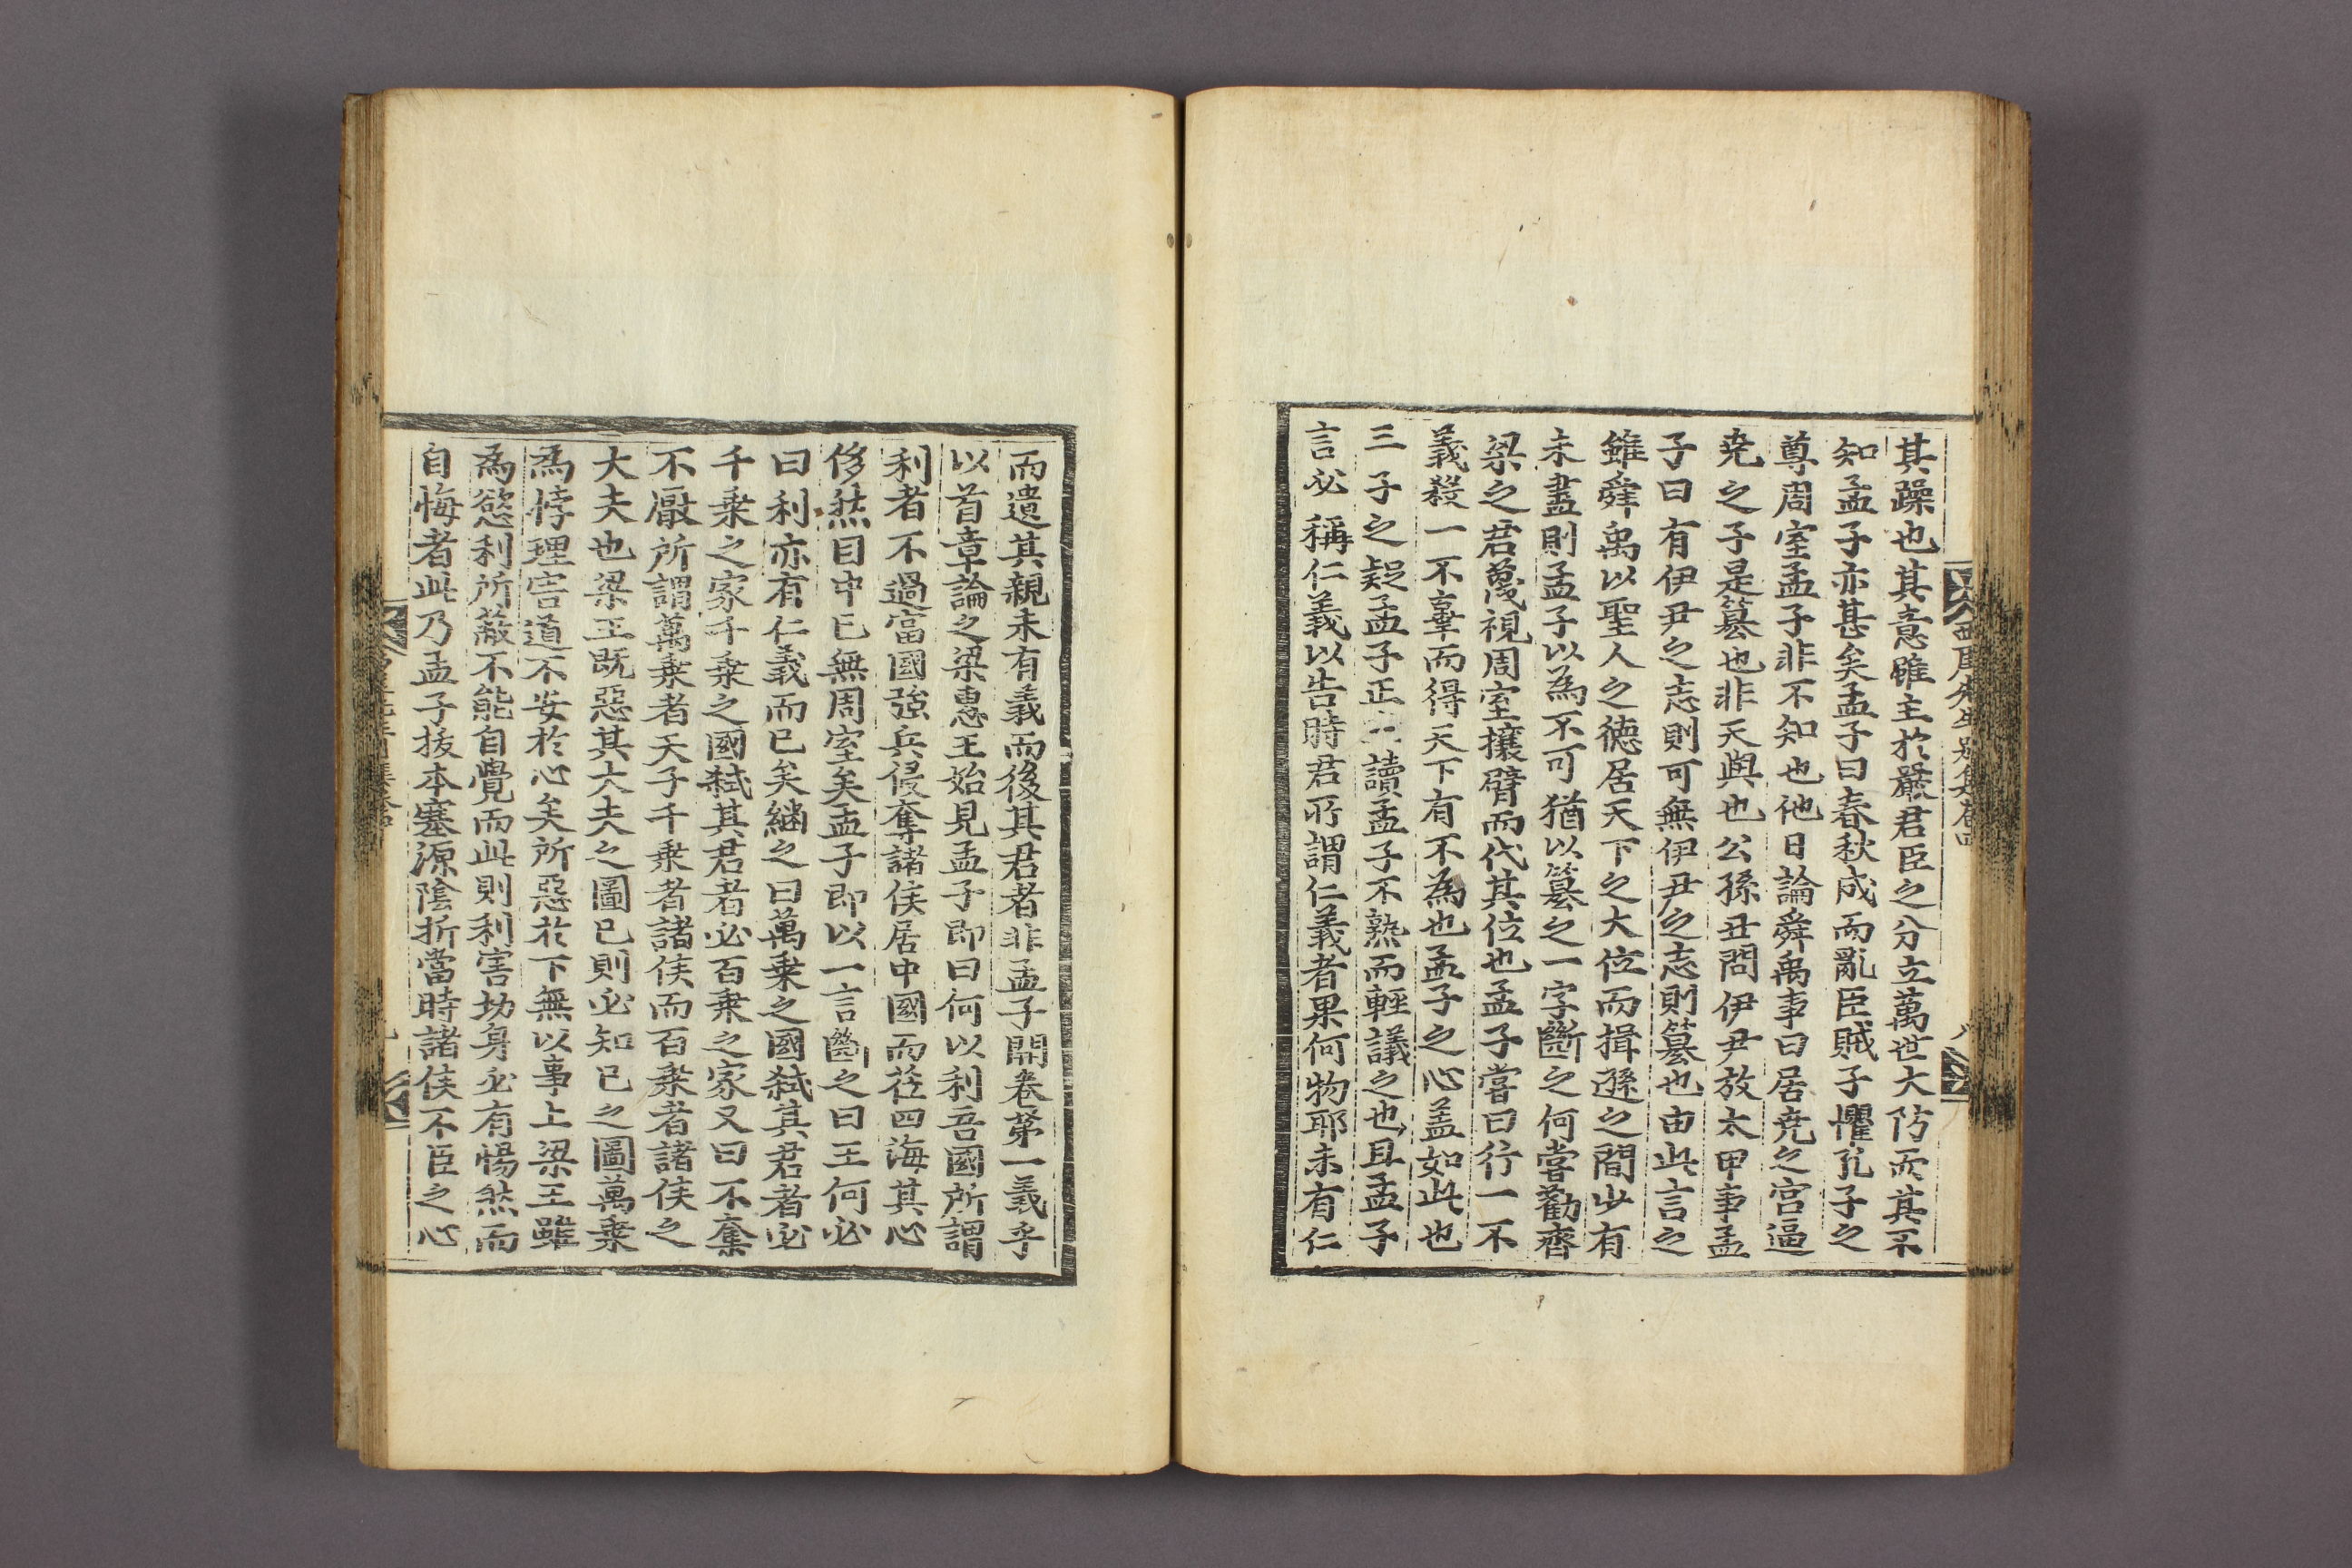 西厓先生別集卷四
八
其躁也其意雖主於嚴君臣之分立萬世大防而其不
知孟子亦甚矣孟子曰春秋成而亂臣賊子懼孔子之
尊周室孟子非不知也他日論舜禹事曰居尭之宮逼
尭之子是簒也非天與也公孫丑問伊尹放太甲事孟
子曰有伊尹之志則可無伊尹之志則簒也由此言之
雖舜禹以聖人之德居天下之大位而揖遜之間少有
未盡則孟子以為不可猶以簒之一字斷之何嘗勸齊
梁之君蔑視周室攘臂而代其位也孟子嘗曰行一不
義殺一不辜而得天下有不為也孟子之心盖如此也
三子之疑孟子正讀孟子不熟而輕議之也且孟子
言必稱仁義以告時君所謂仁義者果何物耶未有仁
而遺其親未有義而後其君者非孟子開卷苐一義乎
以首章論之梁惠王始見孟子即曰何以利吾國所謂
利者不過富國強兵侵奪諸侯居中國而莅四海其心
侈然目中已無周室矣孟子即以一言斷之曰王何必
曰利亦有仁義而已矣繼之曰萬乗之國弑其君者必
千乗之家千乗之國弑其君者必百乗之家又曰不奪
不厭所謂萬乗者天子千乗者諸侯而百乗者諸侯之
大夫也梁王旣惡其大夫之圖已則必知已之圖萬乗
為悖理害道不安於心矣所惡於下無以事上梁王雖
為慾利所蔽不能自覺而此則利害切身必有惕然而
自悔者此乃孟子拔本塞源陰折當時諸侯不臣之心